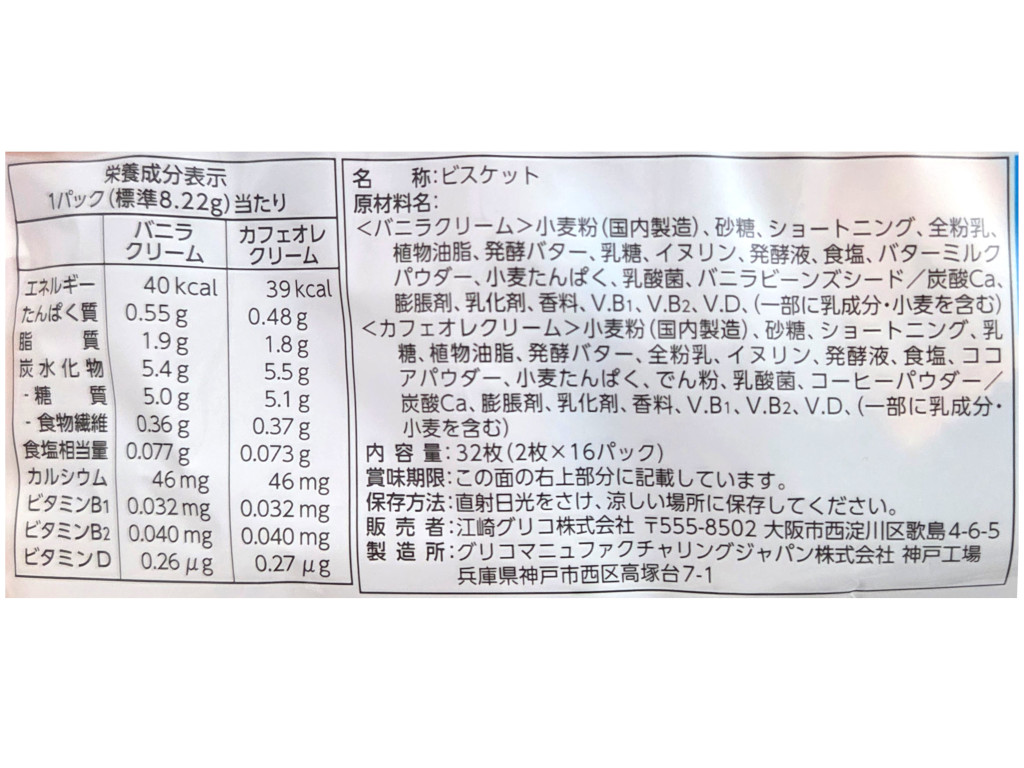 栄養成分表示
1パック(標準8.22g)当たり
バニラクリーム カフェオレクリーム
エネルギー 40 kcal 39 kcal
たんぱく質 0.55 g 0.48 g
脂質 1.9 g 1.8 g
炭水化物 5.4 g 5.5 g
-糖質 5.0 g 5.1 g
-食物繊維 0.36 g 0.37 g
食塩相当量 0.077 g 0.073 g
カルシウム 46 mg 46 mg
ビタミンB1 0.032 mg 0.032 mg
ビタミンB2 0.040 mg 0.040 mg
ビタミンD 0.26 μg 0.27 μg
名 称:ビスケット
原材料名:
<バニラクリーム>小麦粉(国内製造)、砂糖、ショートニング、全粉乳、
植物油脂、発酵バター、乳糖、イヌリン、発酵液、食塩、バターミルク
パウダー、小麦たんぱく、乳酸菌、バニラビーンズシード/炭酸Ca、
膨脹剤、乳化剤、香料、V.B1、V.B2、V.D、(一部に乳成分・小麦を含む)
<カフェオレクリーム>小麦粉(国内製造)、砂糖、ショートニング、乳
糖、植物油脂、発酵バター、全粉乳、イヌリン、発酵液、食塩、ココ
アパウダー、小麦たんぱく、でん粉、乳酸菌、コーヒーパウダー/
炭酸Ca、膨脹剤、乳化剤、香料、V.B1、V.B2、V.D、(一部に乳成分・
小麦を含む)
内 容 量:32枚(2枚×16パック)
賞味期限:この面の右上部分に記載しています。
保存方法:直射日光をさけ、涼しい場所に保存してください。
販 売 者:江崎グリコ株式会社 〒555-8502 大阪市西淀川区歌島4-6-5
製 造 所:グリコマニュファクチャリングジャパン株式会社 神戸工場
兵庫県神戸市西区高塚台7-1